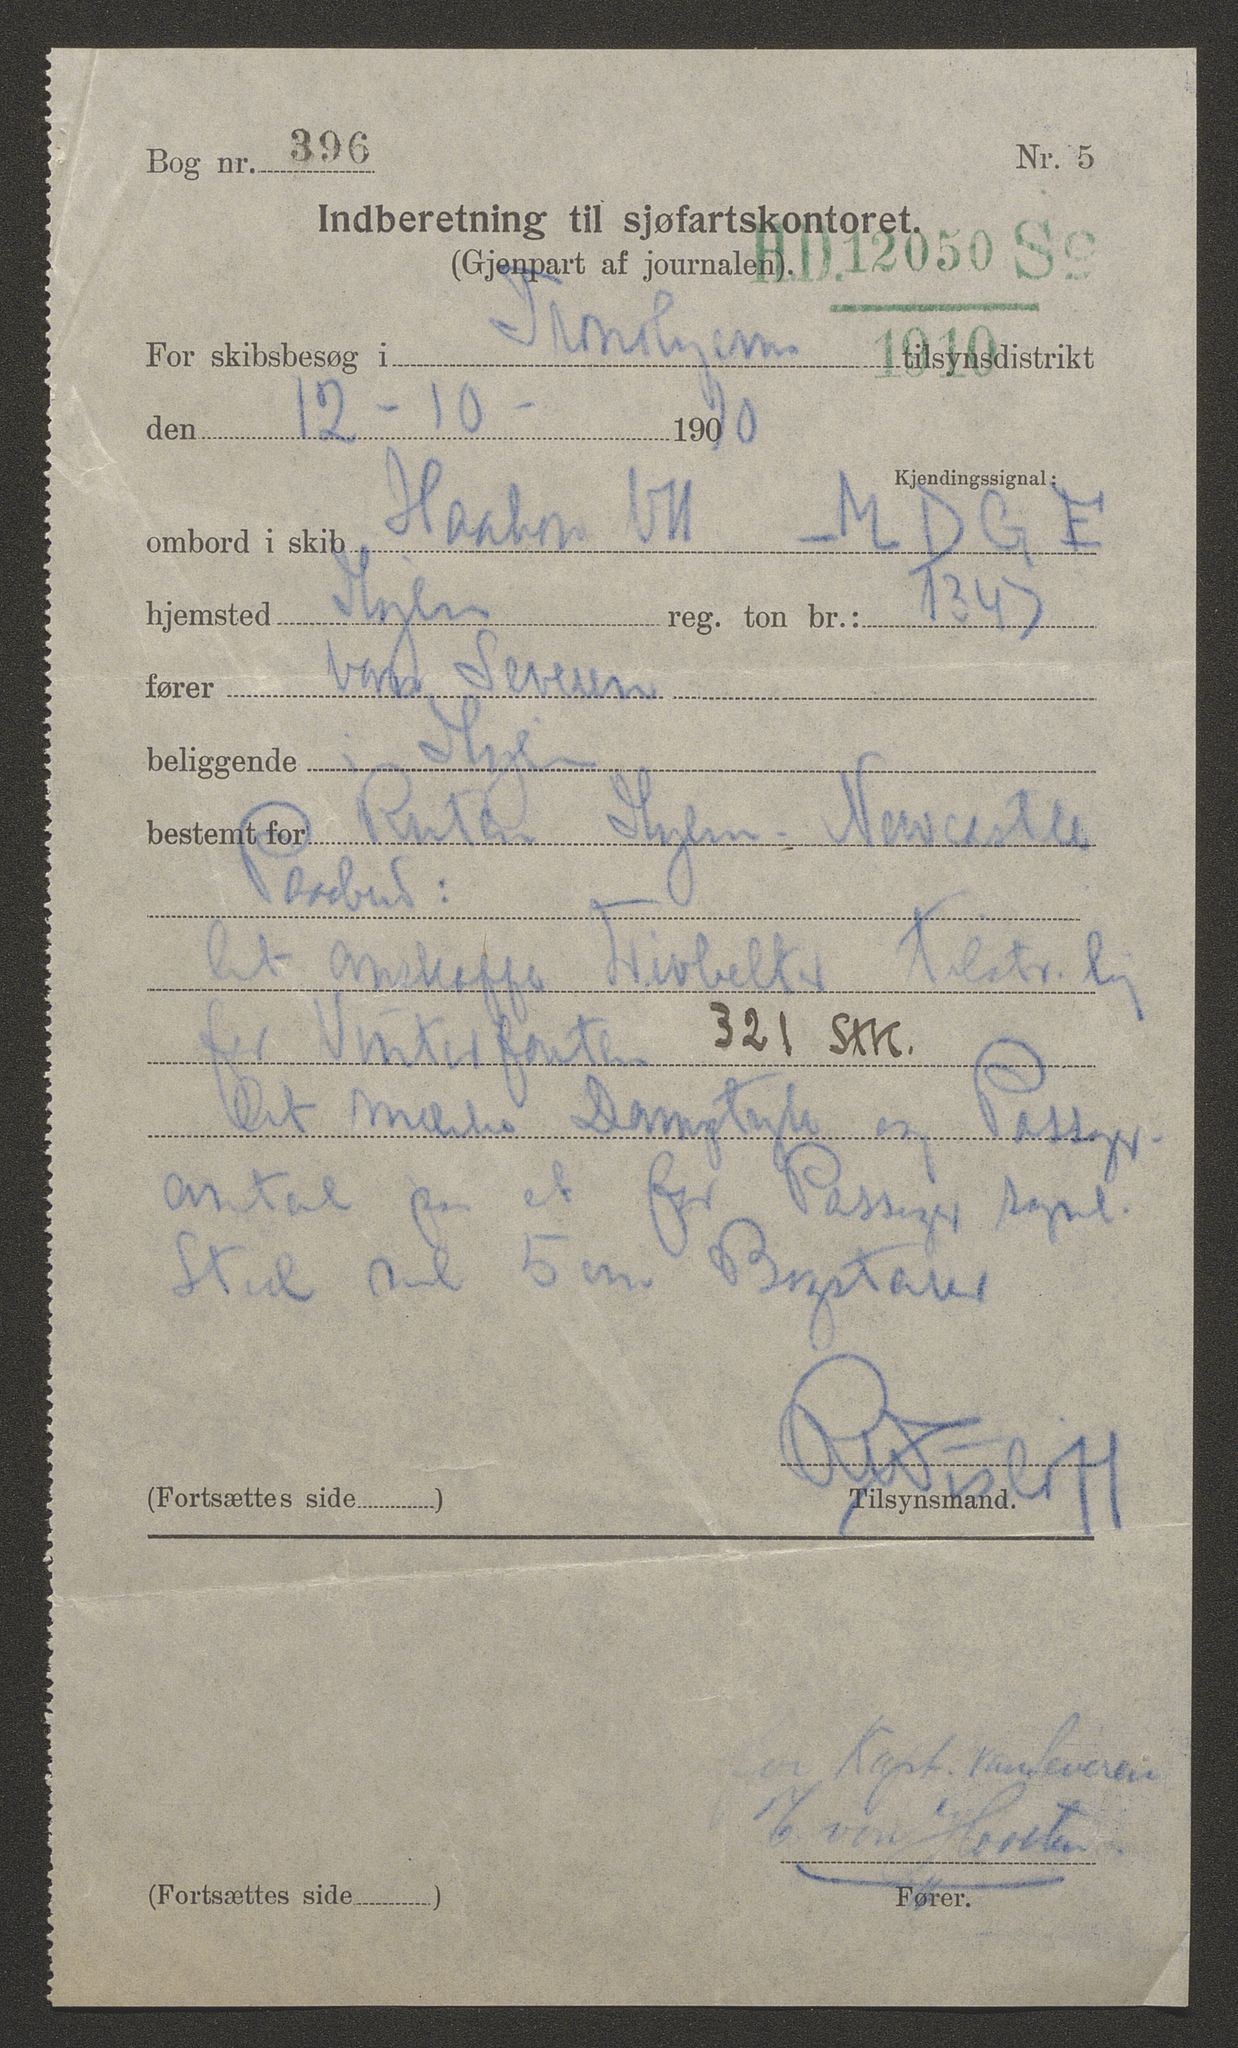 Bog nr. 396 Nr. 5
Indberetning til sjøfartskontoret.
(Gjenpart af journalen).
H.D. 12050 Sø
1910
For skibsbesøg i Trondhjems tilsynsdistrikt
den 12 - 10 - 190 10
Kjendingssignal:
ombord i skib Haakon VII - M D G F
hjemsted Thjem reg. ton br.: 1347
fører van Severen
beliggende i Thjem
bestemt for Ruten Thjem - Newcastle
Paabud:
At anskaffe Livbelter tilstr.lig
for Vinterfarten 321 Stk.
At mærke Damptryk og Passager-
antal paa et for Passager synl.
Sted med 5 cm Bogstaver
(Fortsættes side ) Tilsynsmand.
for Kapt. van Severen
von
(Fortsættes side ) Fører.